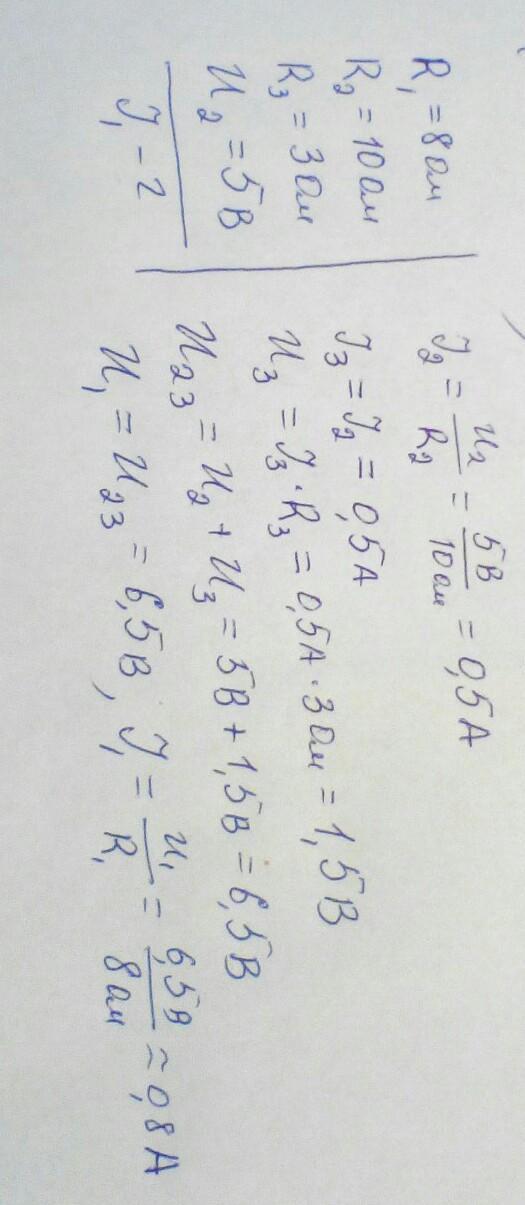 R₁ = 8 Ом
R₂ = 10 Ом
R₃ = 3 Ом
U₂ = 5 В
J₁ - ?
J₂ = U₂/R₂ = 5В/10 Ом = 0,5 А
J₃ = J₂ = 0,5 А
U₃ = J₃ · R₃ = 0,5 А · 3 Ом = 1,5 В
U₂₃ = U₂ + U₃ = 5 В + 1,5 В = 6,5 В
U₁ = U₂₃ = 6,5 В, J₁ = U₁/R₁ = 6,5 В/8 Ом ≈ 0,8 А